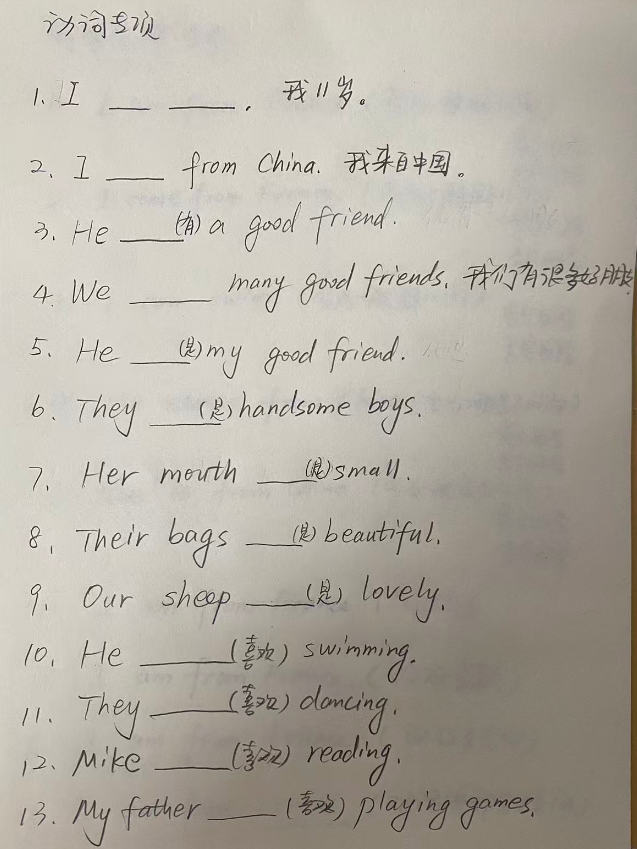 动词专项
1. I ___ ____. 我11岁。
2. I ____ from China. 我来自中国。
3. He ____(有) a good friend.
4. We _____ many good friends. 我们有很多好朋友
5. He ____(是) my good friend.
6. They ____(是) handsome boys.
7. Her mouth ____(是) small.
8. Their bags ____(是) beautiful.
9. Our sheep ____(是) lovely.
10. He ______(喜欢) swimming.
11. They ______(喜欢) dancing.
12. Mike _____(喜欢) reading.
13. My father _____ (喜欢) playing games.